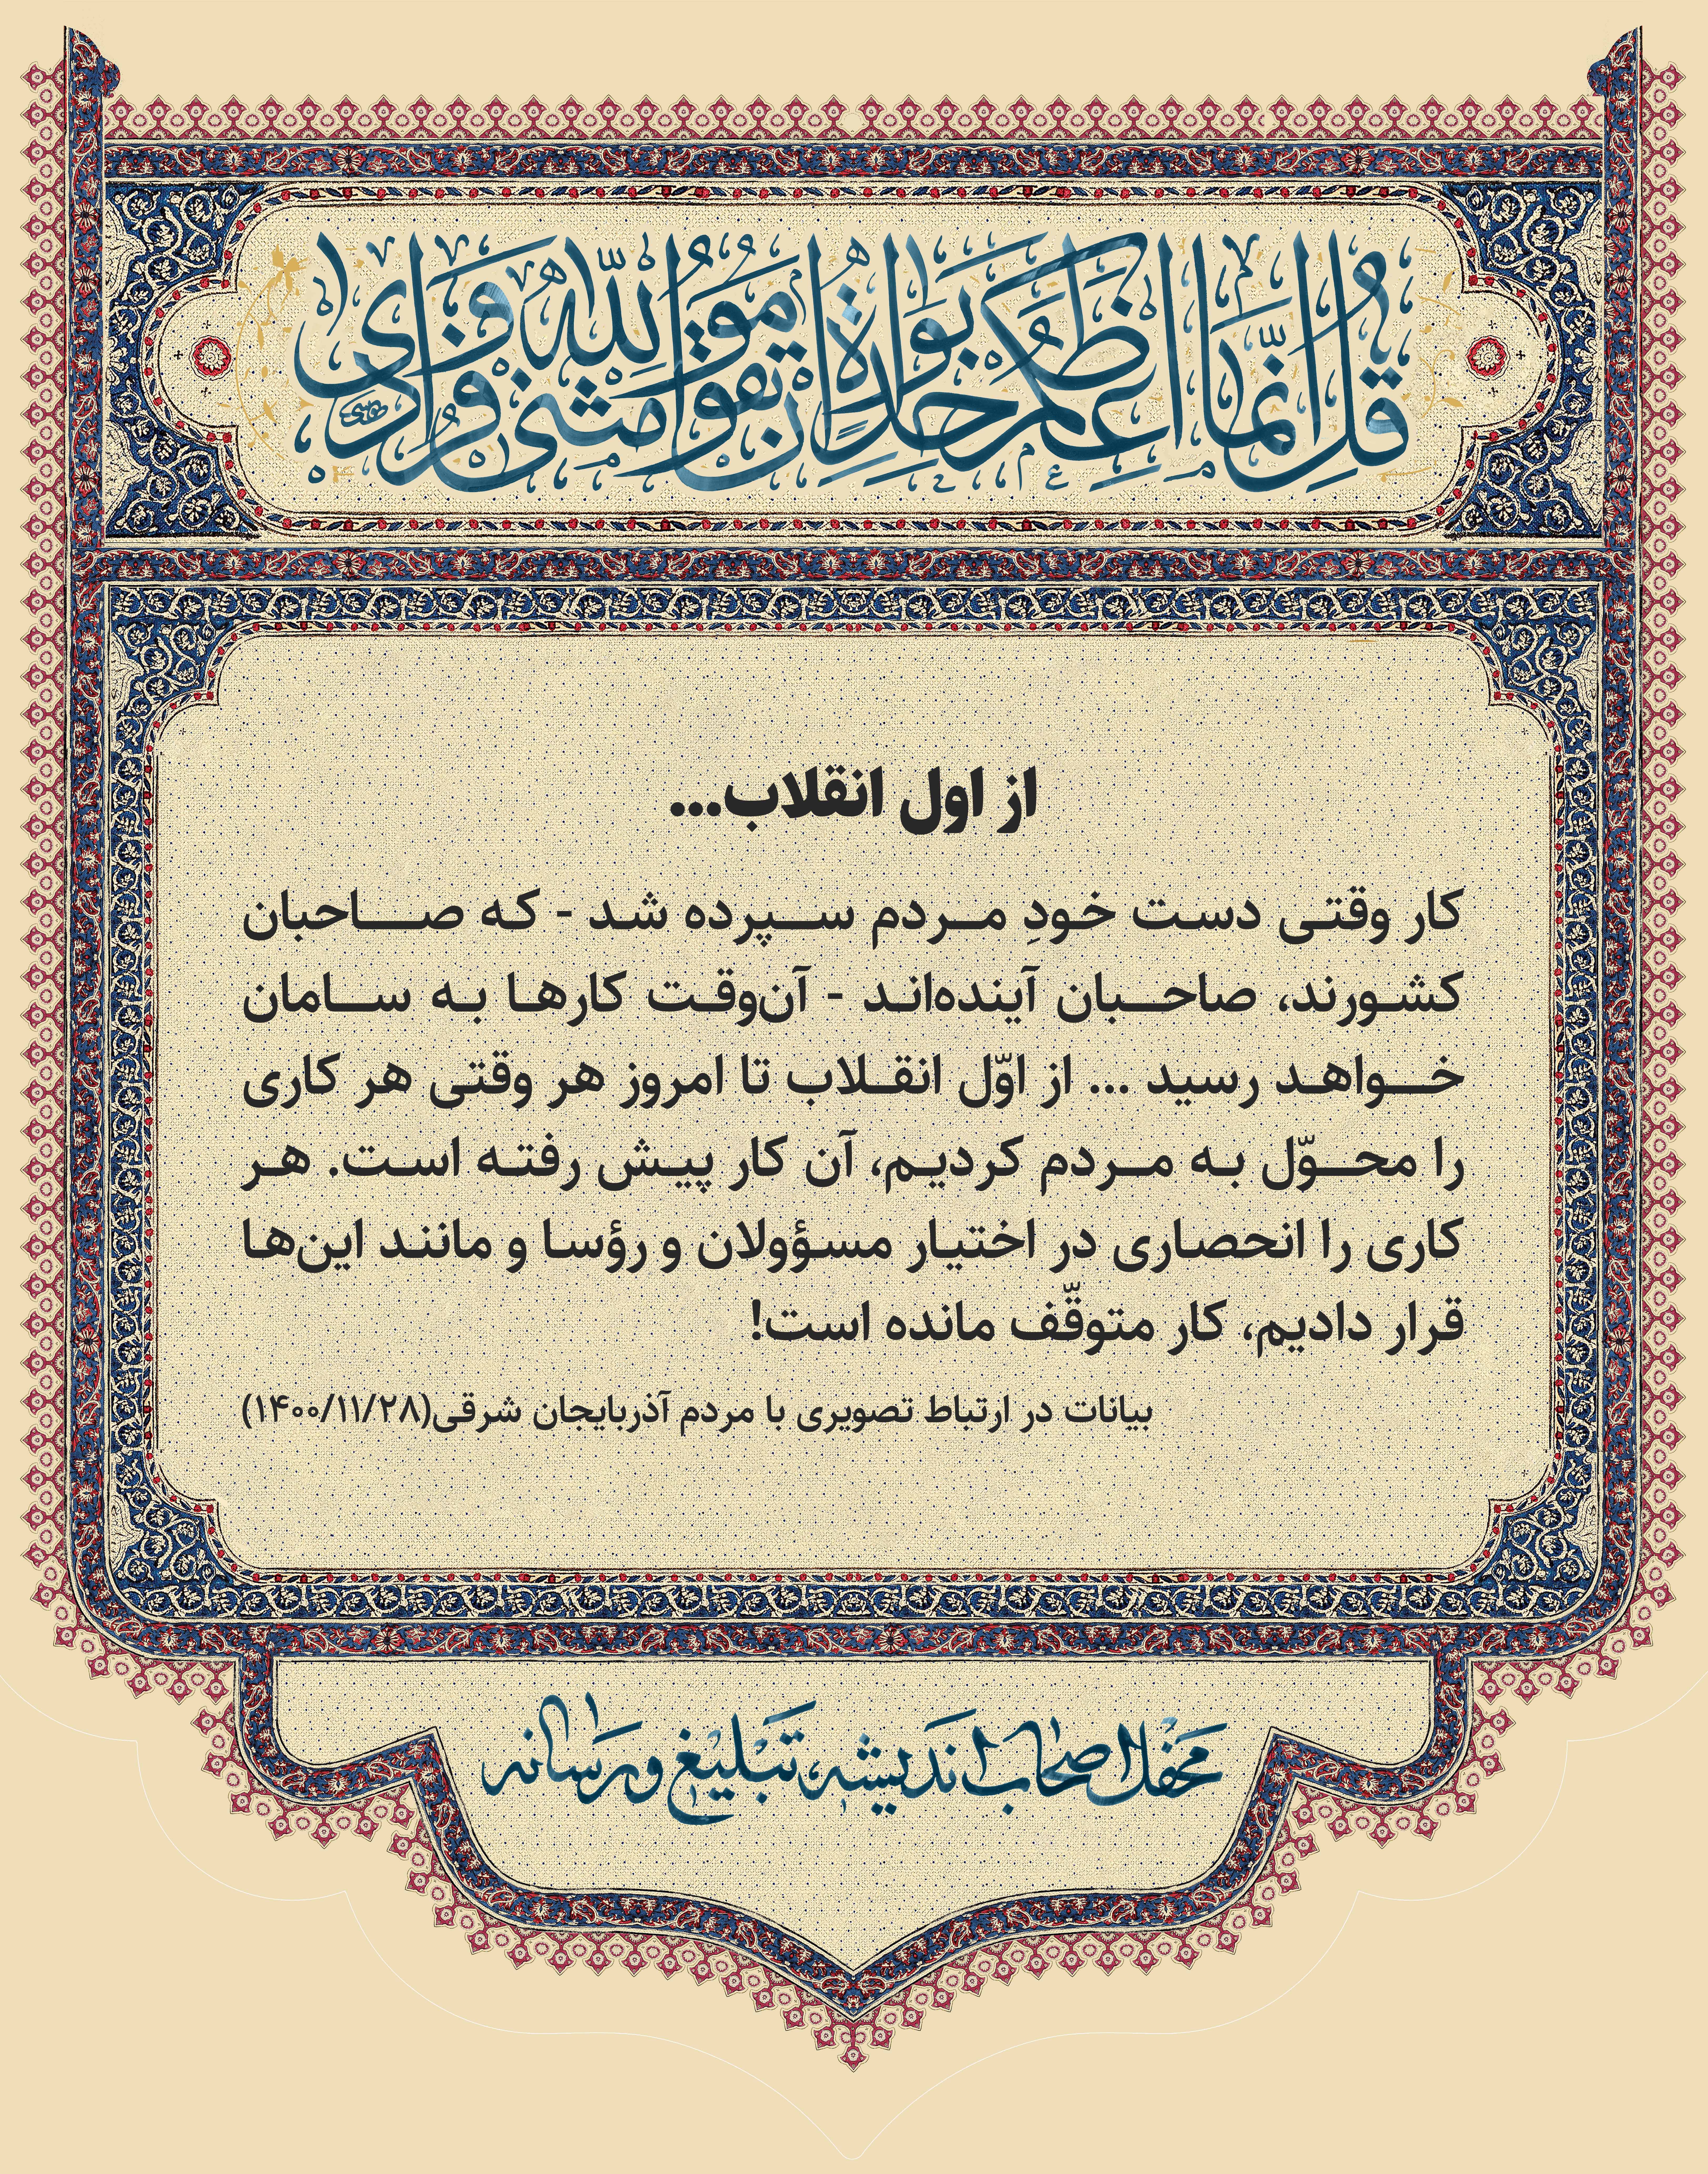 قل انما اعظکم بواحدة ان تقوموا لله مثنی و فرادی
از اول انقلاب...
کار وقتی دست خودِ مردم سپرده شد - که صاحبان
کشورند، صاحبان آینده‌اند - آن‌وقت کارها به سامان
خواهد رسید ... از اوّل انقلاب تا امروز هر وقتی هر کاری
را محوّل به مردم کردیم، آن کار پیش رفته است. هر
کاری را انحصاری در اختیار مسؤولان و رؤسا و مانند این‌ها
قرار دادیم، کار متوقّف مانده است!
بیانات در ارتباط تصویری با مردم آذربایجان شرقی(۱۴۰۰/۱۱/۲۸)
محفل اصحاب اندیشه، تبلیغ و رسانه